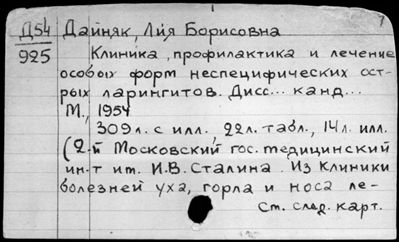 7
Д54 Дайняк, Лия Борисовна
925 Клиника, профилактика и лечение
особых форм неспецифических ост-
рых ларингитов. Дисс... канд...
М., 1954
309 л. с илл., 22 л. табл., 14 л. илл.
(2-й Московский гос. медицинский
ин-т им. И.В. Сталина. Из Клиники
болезней уха, горла и носа ле-
См. след. карт.